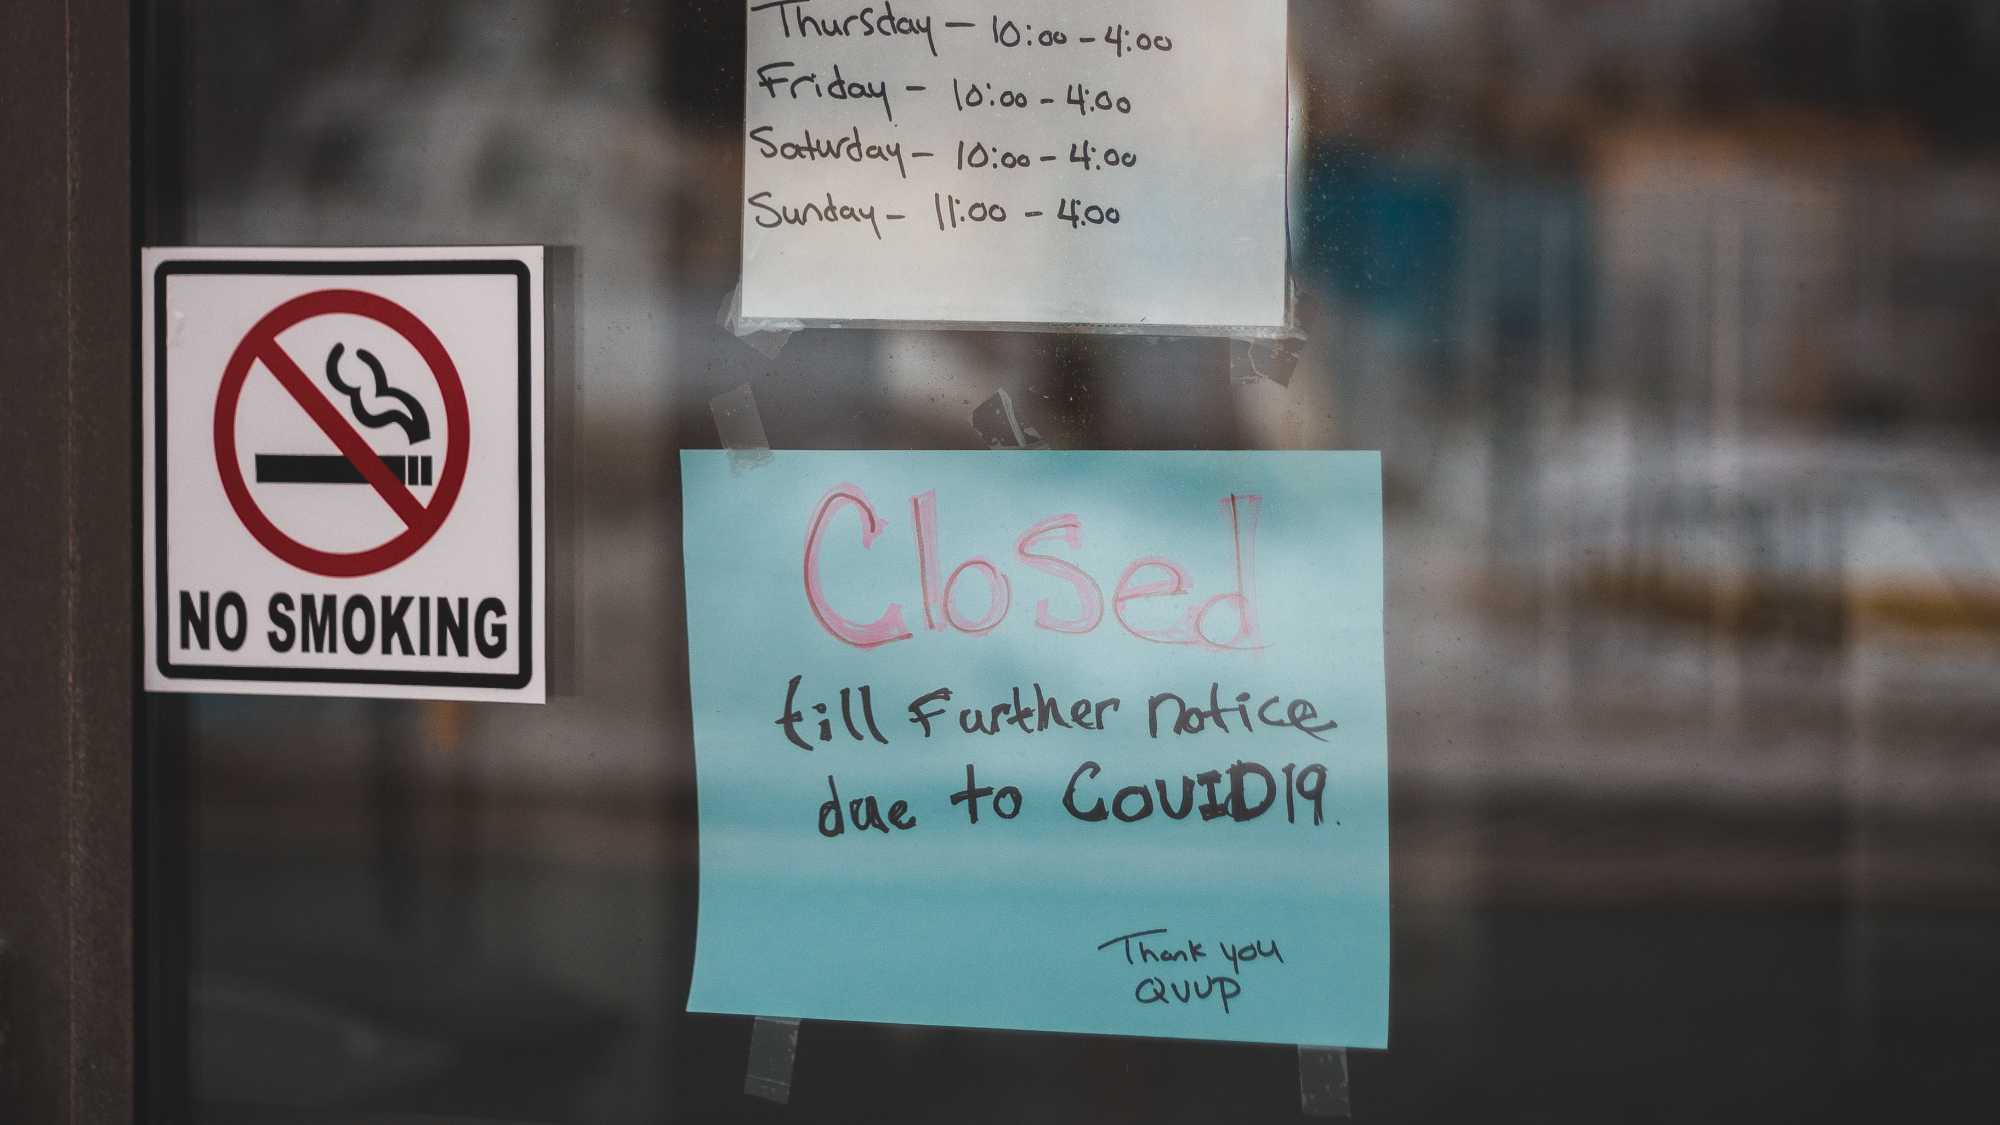 Thursday - 10:00 - 4:00
Friday - 10:00 - 4:00
Saturday - 10:00 - 4:00
Sunday - 11:00 - 4:00
NO SMOKING
Closed
till Further notice
due to COVID19.
Thank you
QVVP